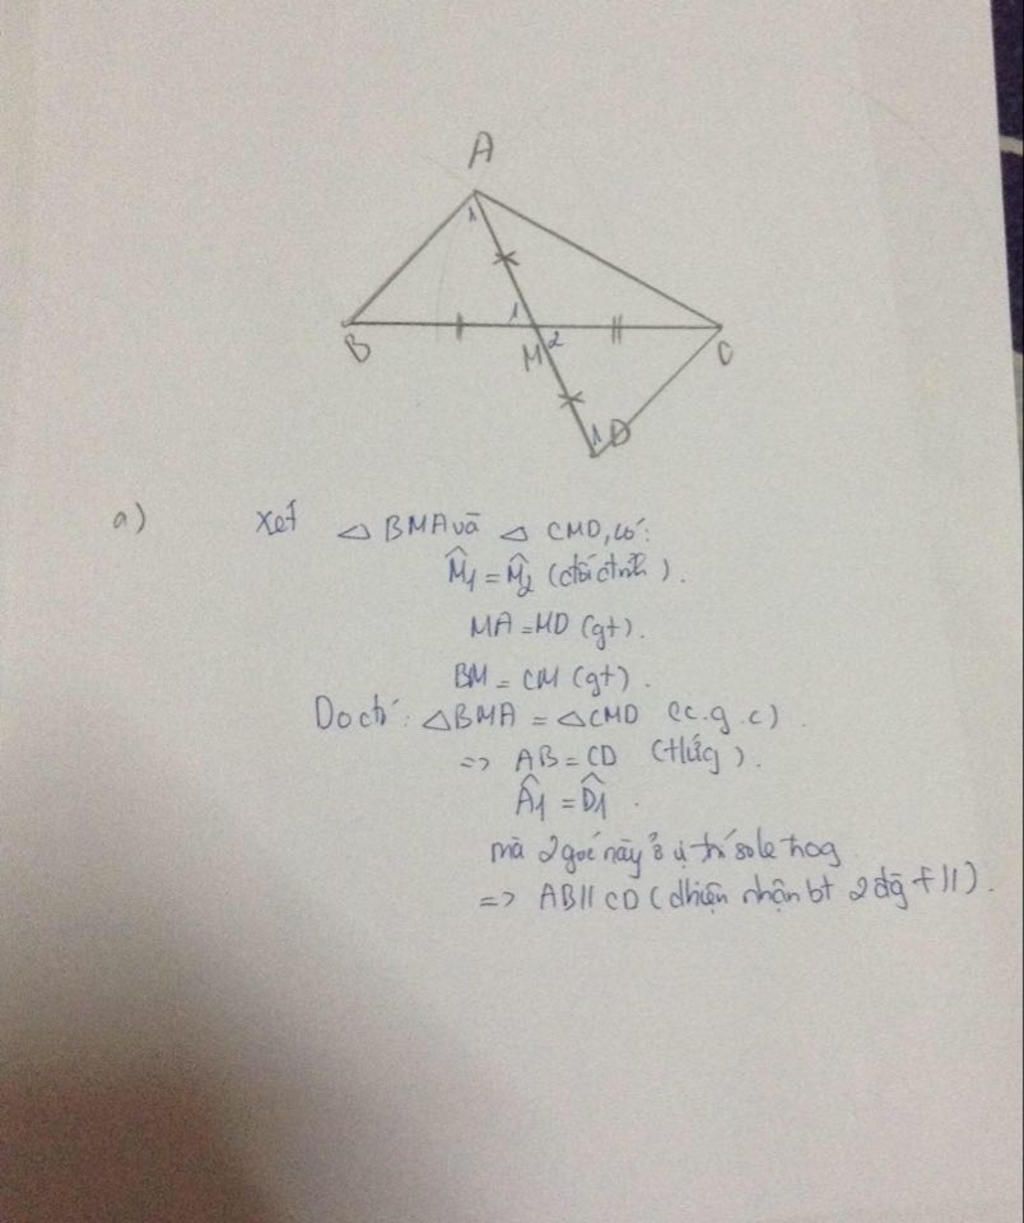 A
1
1
B
M
2
C
1
D
a) Xét △ BMA và △ CMD, có:
M̂1 = M̂2 (đối đỉnh).
MA = MD (gt).
BM = CM (gt).
Do đó: △BMA = △CMD (c.g.c).
=> AB = CD (tứg).
Â1 = D̂1.
mà 2 góc này ở vị trí sole trog
=> AB // CD (dhiện nhận bt 2 đg t //).